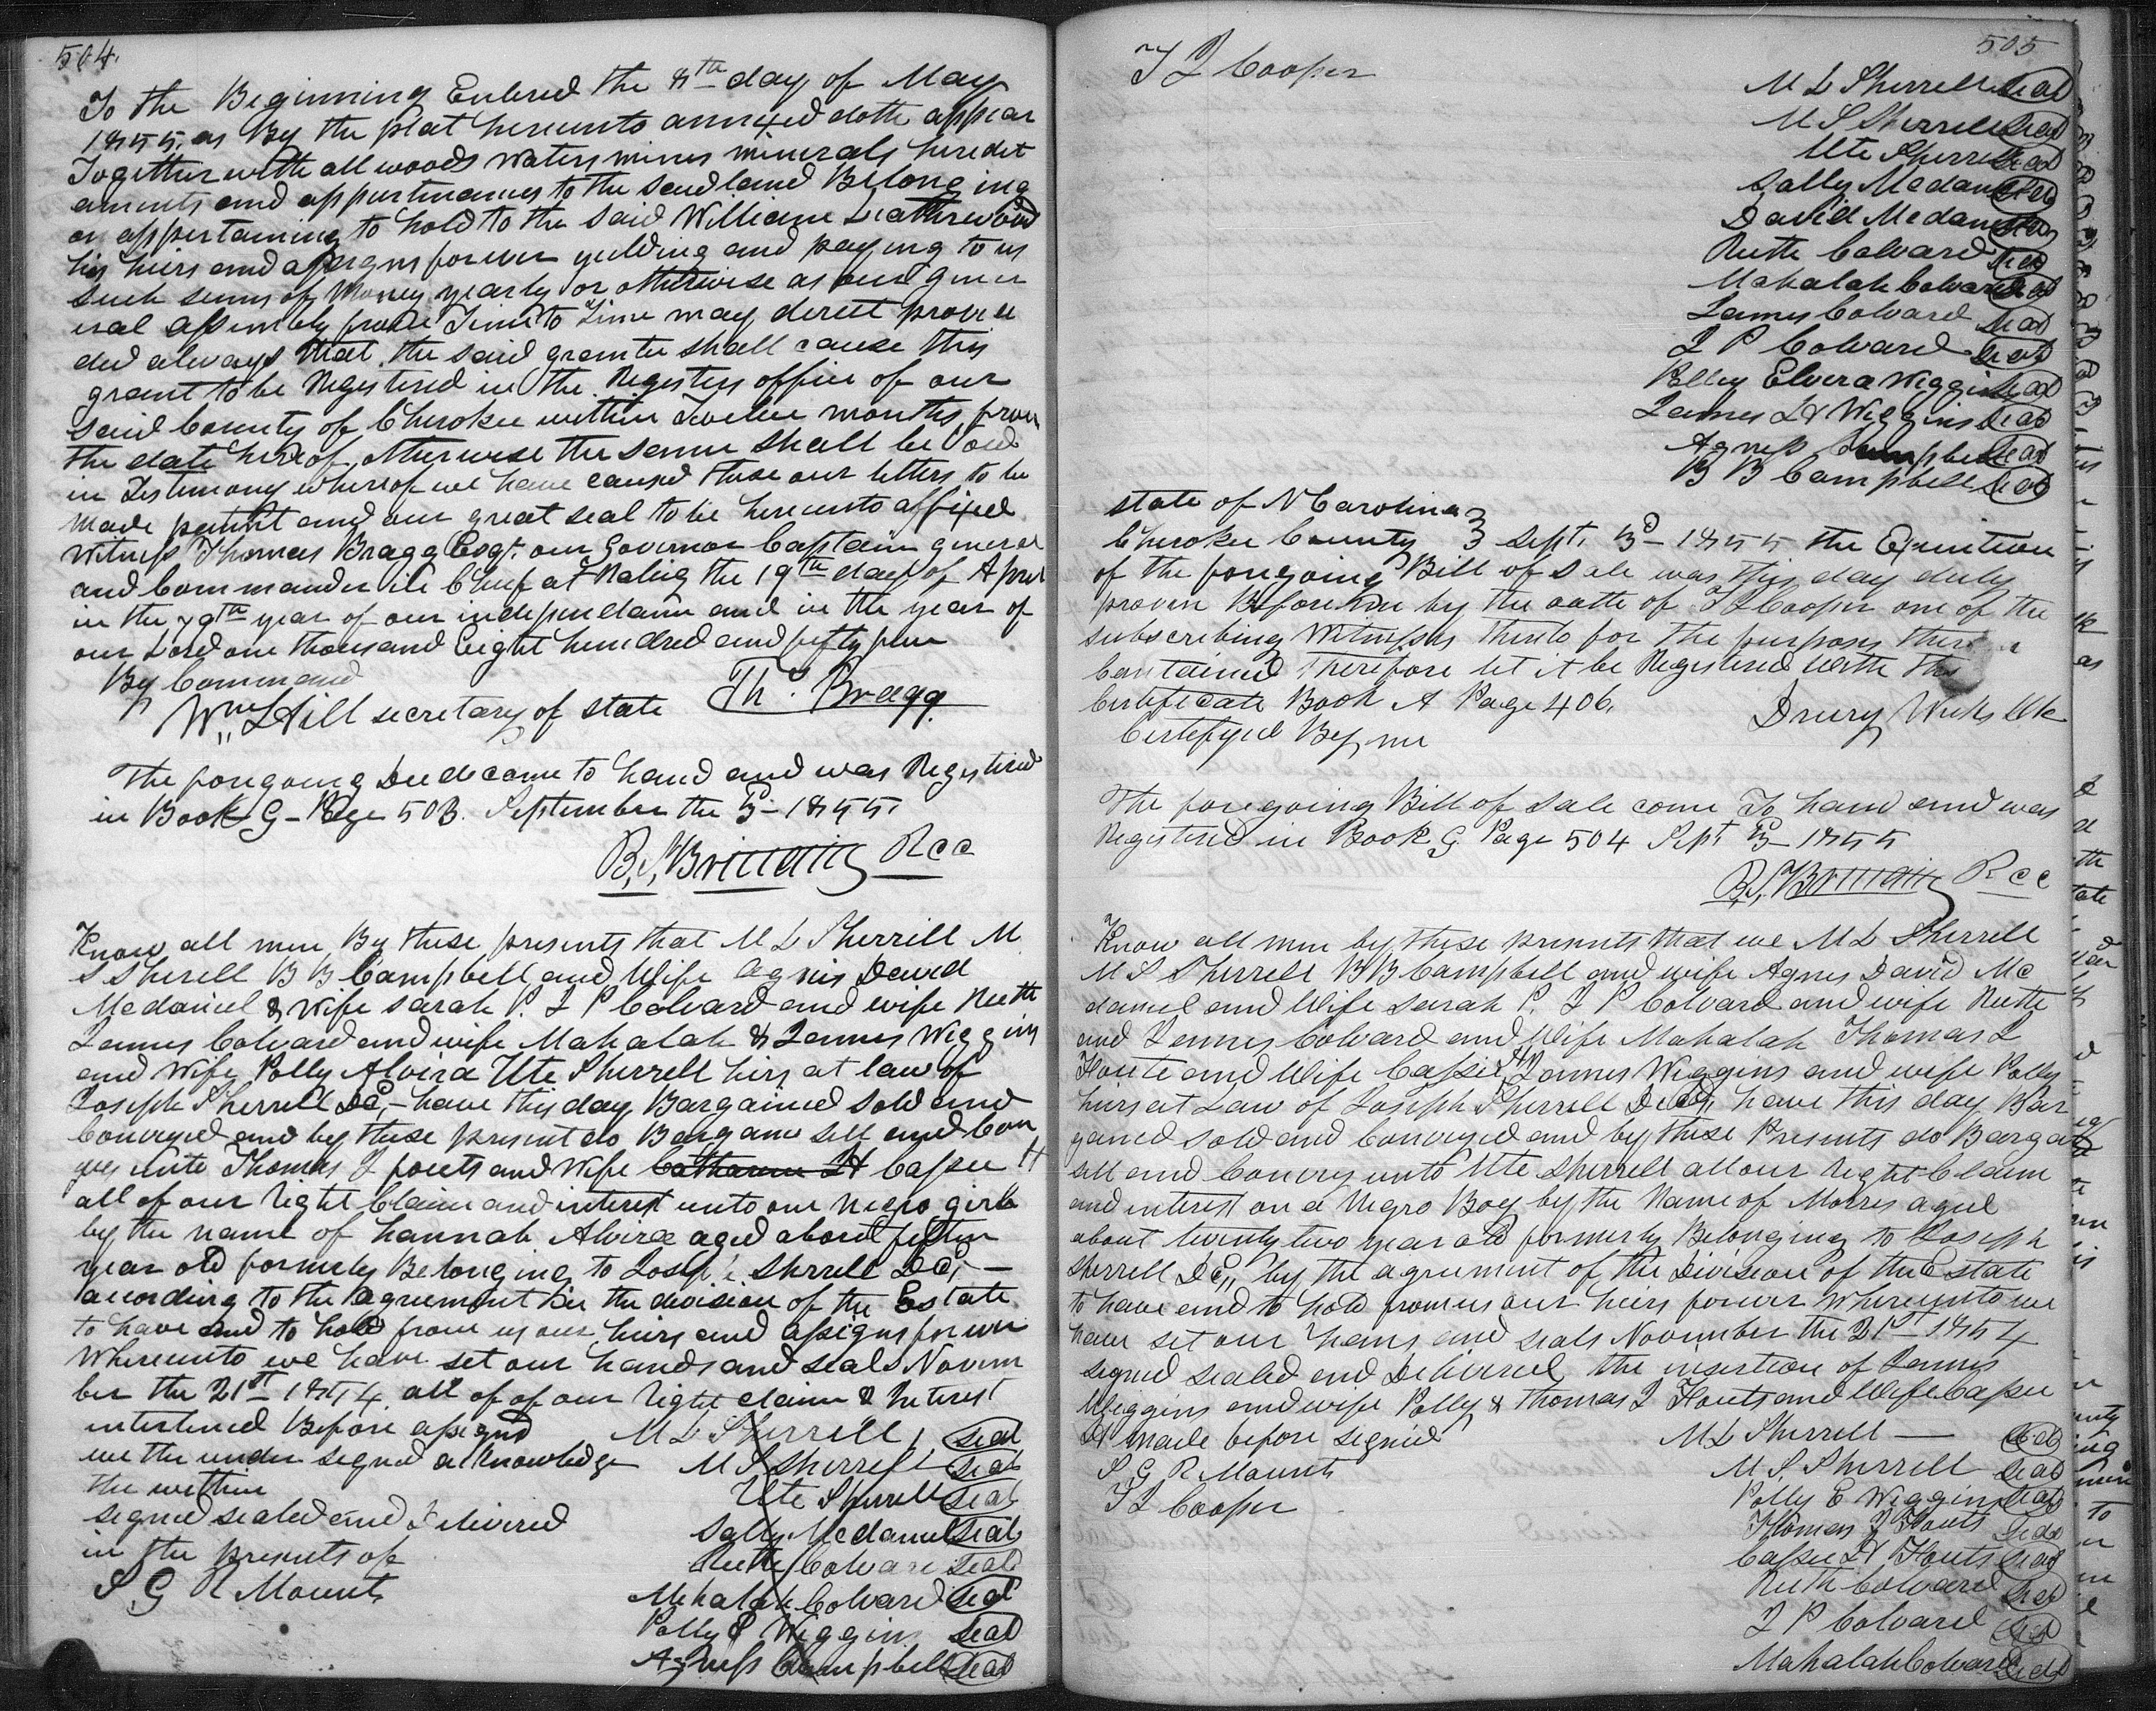 504.
To the Beginning Entered the 8th day of May
1855. as By the plat hereunto annixed doth appear
Together with all woods waters mines minerals heredit
aments and appurtinances to the said land Belonging
or appertaining to hold to the said William Leatherwood
his heirs and assigns forever yielding and paying to us
such sums of Money yearly or otherwise as our Gener
eral assembly from Time to Time may derect provi
ded always that the said grantee shall cause this
grant to be Registered in the Registers office of our
said County of Cherokee within Twelve months from
the date hereof otherwise the same shall be Void
in Testimony whereof we have caused these our letters to be
Made patent and our great seal to be hereunto affixed
Witness Thomas Bragg Esqr. our Governor Captain general
and Commander in Chief at Raleig the 19th day of April
in the 79th year of our independance and in the year of
our Lord one thousand Eight hundred and fifty five
By Command
Wm Hill secretary of state Th. Bragg
The foregoing Deed came to hand and was Registered
in Book G - Page 503. September the 3d - 1855.
B. S. Brittain Rcc
Know all men By these presents that M L Sherrill M
S Sherell B B Campbell and Wife Agnis David
Mcdaniel & Wife Sarah P. J P Colvard and wife Ruth
James Colvard and wife Mahalah & James Wiggins
and Wife Polly Alvira Ute Sherrell hirs at law of
Joseph Sherrell Dcd, - have this day Bargained sold and
Conveyed and by these present do Bargane sell and Con
vey unto Thomas J fouts and Wife Catharine H Cassee H
all of our right Claim and interest unto our negro girl
by the name of Hannah Alvira aged about fiften
year old formerly Belonging to Joseph Sherrell Dcd, -
according to the agreement in the division of the Estate
to have and to hold from us our heirs and assigns forever
Whereunto we have set our hands and seals Novem
ber the 21st 1854. all of of our right claim & Interest
interlined Before assignd M L Sherrell, Seal
we the under signed acknowledge M S Sherrell Seal
the within Ute Sherrell Seal
signed sealed and Delivired Sally Mcdaniel Seal
in the presents of Ruth Colvard Seal
S G R Mounts Mahalah Colvard Seal
Polly E Wiggins Seal
Agness Campbell Seal
505
T J Cooper M L Sherrell Seal
M S Sherrell Seal
Ute Sherrell Seal
Sally Mcdaniel Seal
David Mcdaniel Seal
Ruth Colvard Seal
Mahalah Colvard Seal
James Colvard Seal
J P Colvard Seal
Polley Elvira Wiggins Seal
James H Wiggins Seal
Agness Campbell Seal
B B Campbell Seal
state of N Carolina
Cherokee County } Sept. 3d - 1855 the Execution
of the foregoing Bill of sale was this day duly
proven Before me by the oath of T J Cooper one of the
subscribing Witnesses thereto for the purposes there
Contained Therefore let it be Registered with this
Certificate Book A Page 406.
Certifyed By me Drury Weeks Clk
The foregoing Bill of sale come To hand and was
Registered in Book G Page 504 Sept 3d - 1855
B. S. Brittain Rcc
Know all men by these presents that we M L Sherrell
M S Sherrell B B Campbell and wife Agnes David Mc
daniel and Wife Sarah P. J P Colvard and wife Ruth
and James Colvard and Wife Mahalah Thomas J
Foute and Wife Cassie H James Wiggins and wife Polly
hirs at Law of Joseph Sherrell Decd, have this day Bar
gained sold and Conveyed and by these Presents do Bargan
sell and Convey unto Ute Sherrell all our right Claim
and interest on a Negro Boy by the Name of Morris aged
about twenty two year old formerly Belonging to Joseph
Sherrell Dcd,, by the agreement of the Division of the Estate
to have and to hold from us our heirs forever Whereunto we
have set our hans and seals November the 21st 1854
Signed sealed and Delivered the insertion of James
Wiggins and wife Polly & Thomas J Fouts and Wife Cassee
H made before signed M L Sherrell — Seal
S G R Mounts M. S. Sherrell Seal
T J Cooper Polly E Wiggins Seal
Thomas J Fouts Seal
Cassee H Fouts Seal
Ruth Colvard Seal
J P Colvard Seal
Mahalah Colvard Seal